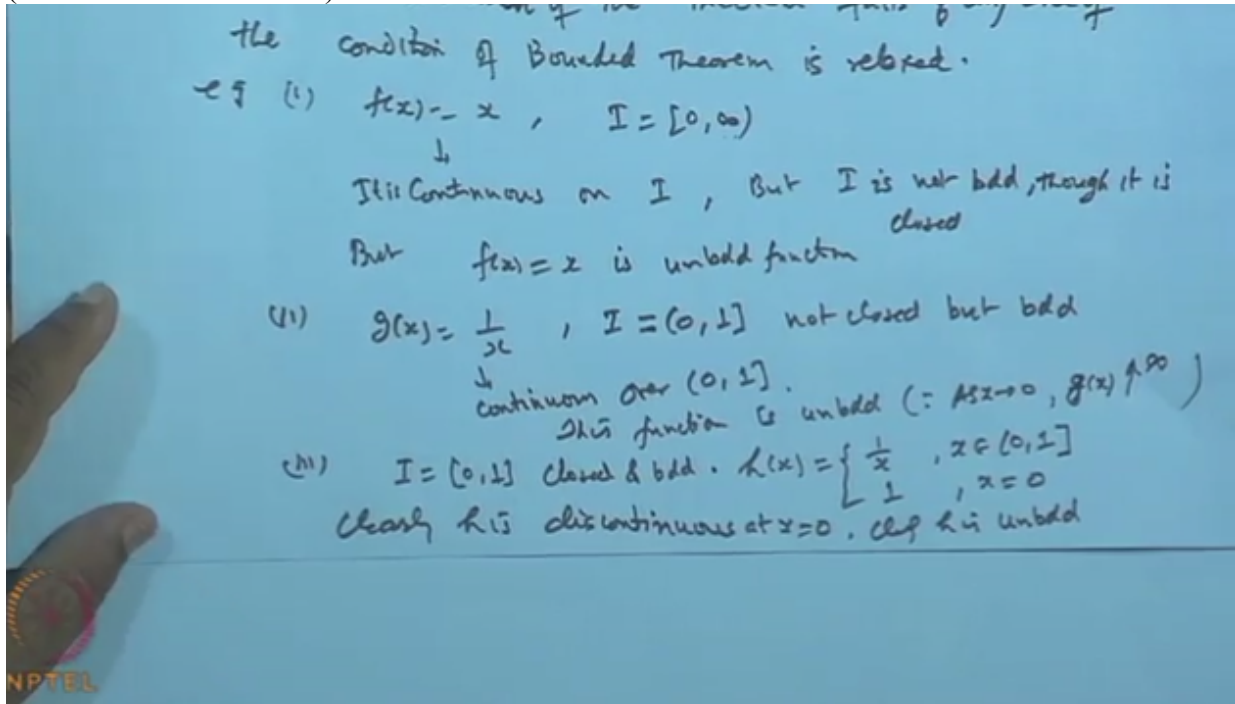 the condition of Bounded Theorem is relaxed.
eg (i) f(x) = x , I = [0, ∞)
↓
It is Continuous on I , But I is not bdd, though it is
closed
But f(x) = x is unbdd function
(ii) g(x) = 1/x , I = (0, 1] not closed but bdd
↓
continuous over (0, 1].
This function is unbdd (∵ As x→0, g(x) ↑ ∞ )
(iii) I = [0,1] closed & bdd. h(x) = { 1/x , x ∈ (0,1]
1 , x = 0
Clearly h is discontinuous at x=0. h is unbdd
NPTEL